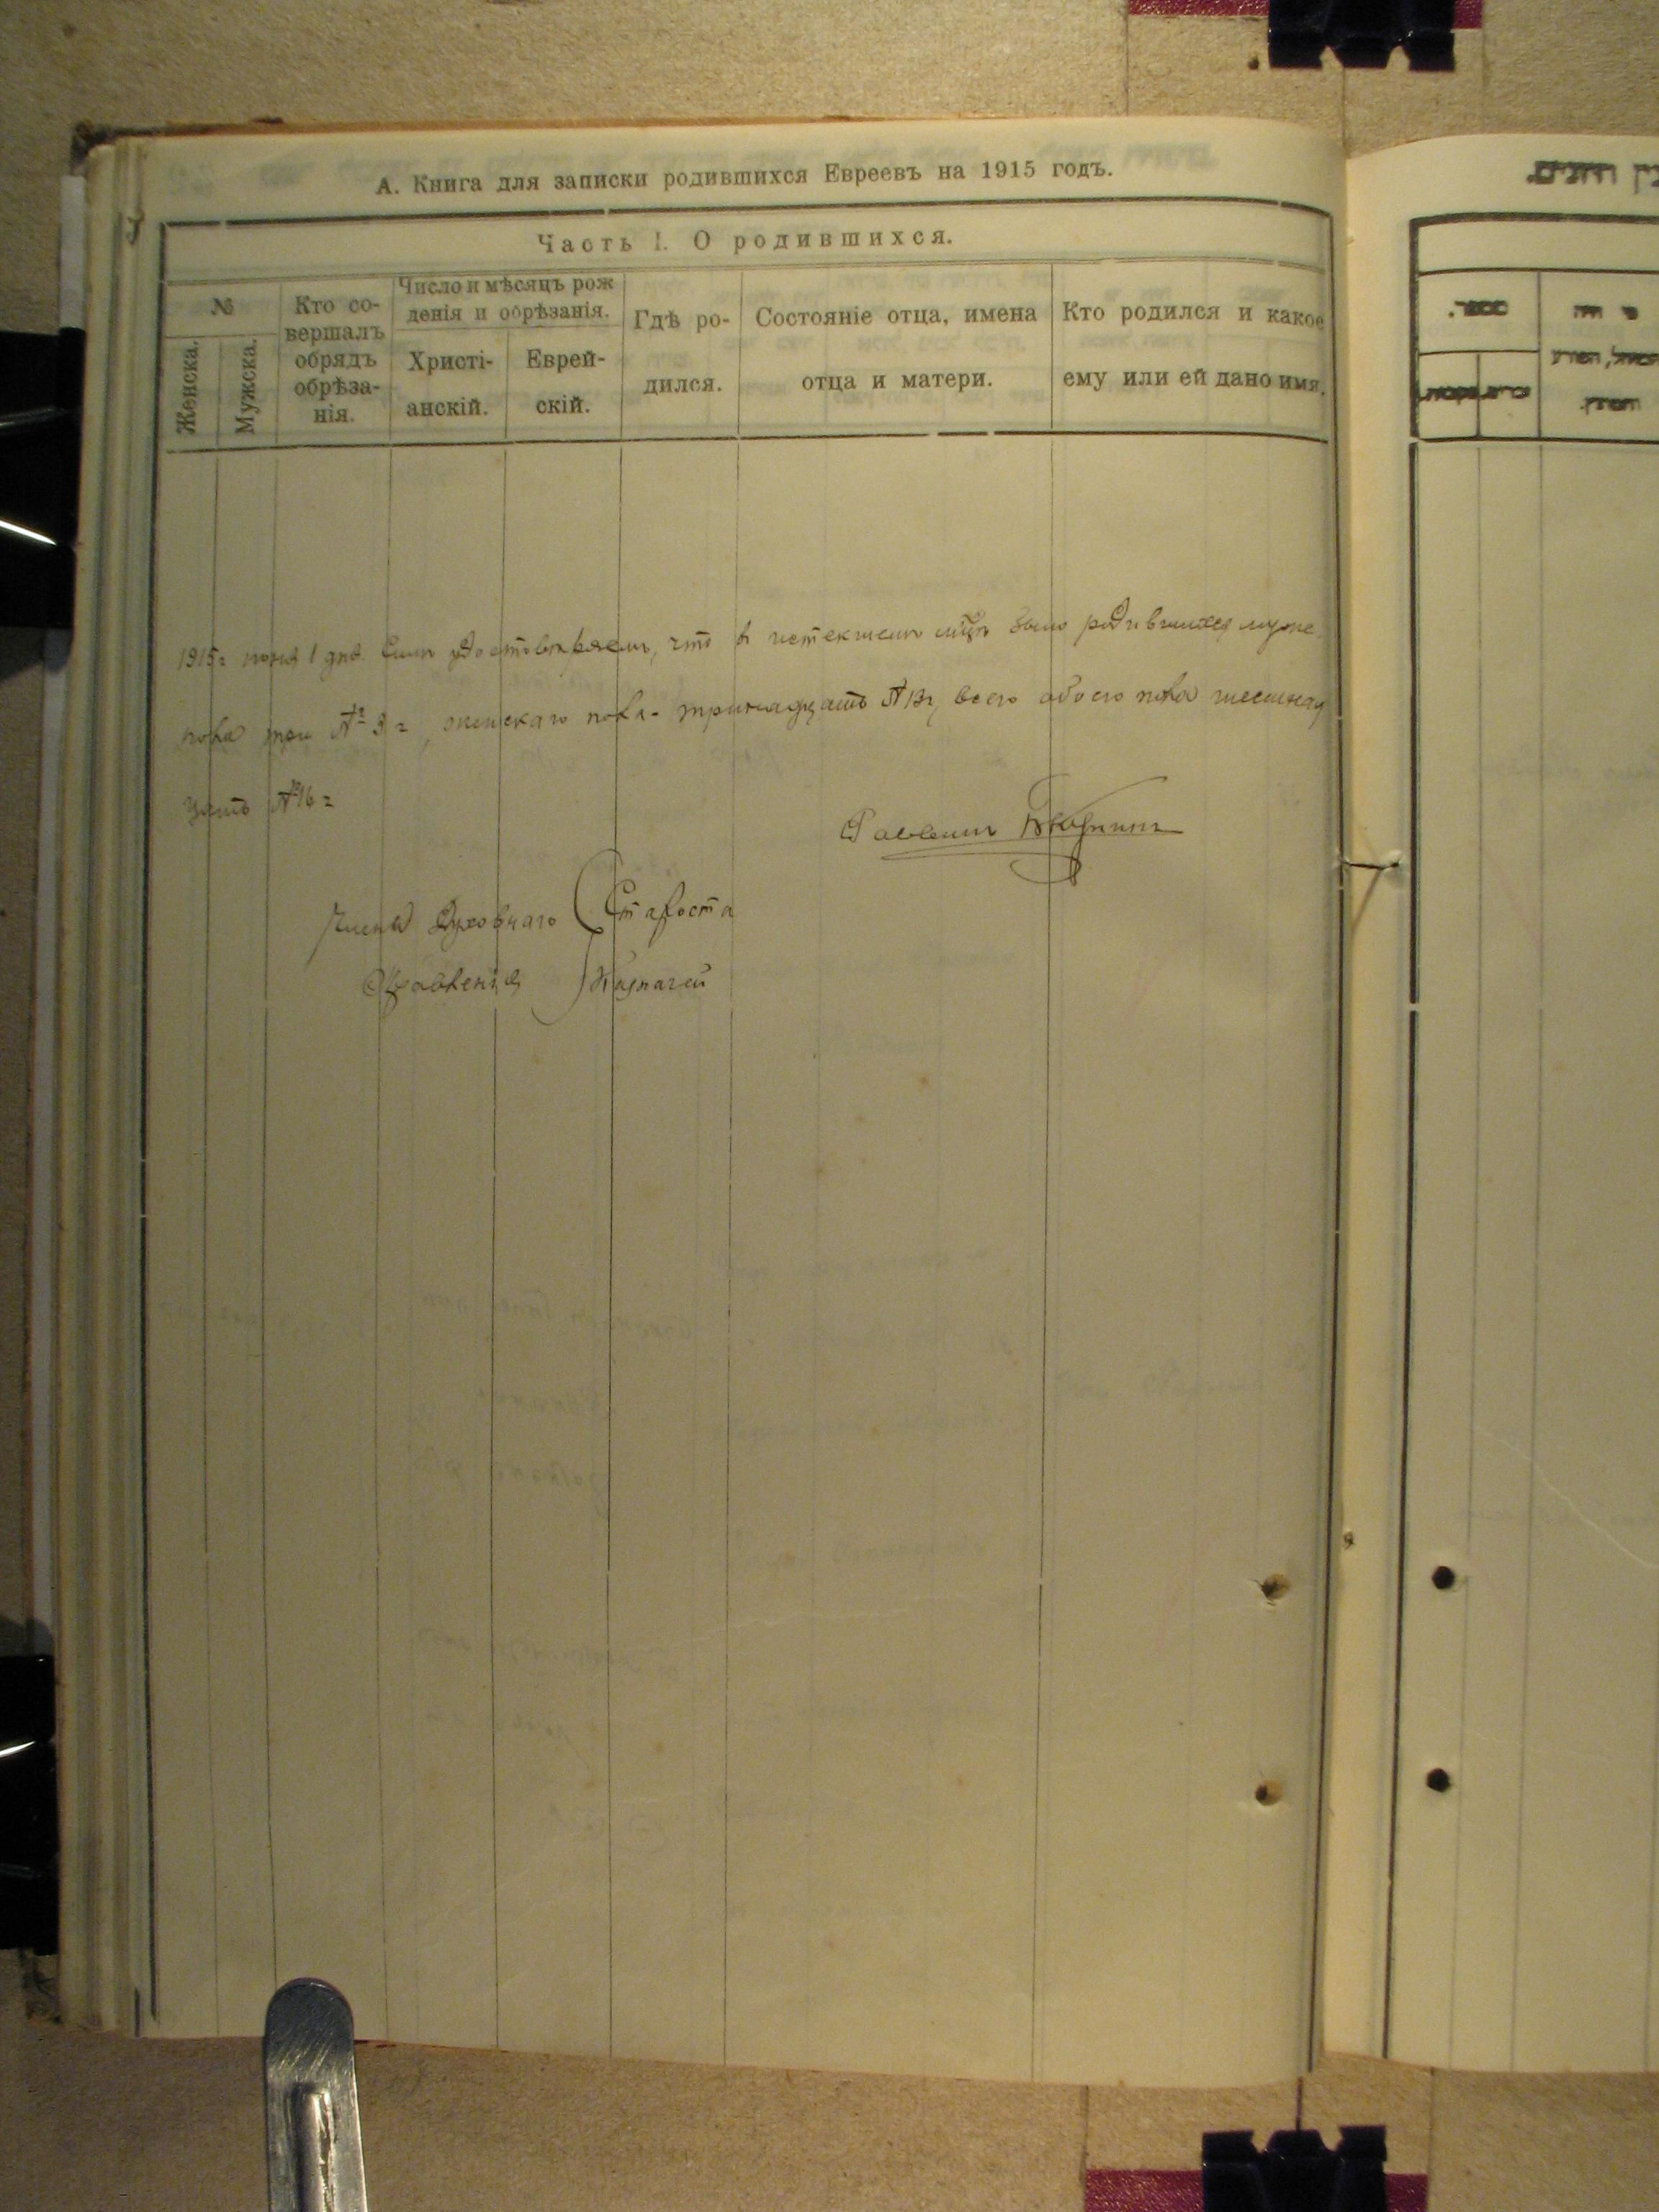 А. Книга для записки родившихся Евреевъ на 1915 годъ.
Часть I. О родившихся.
№
Женска.
Мужска.
Кто со-
вершалъ
обрядъ
обрѣза-
нія.
Число и мѣсяцъ рож
денія и обрѣзанія.
Христі-
анскій.
Еврей-
скій.
Гдѣ ро-
дился.
Состояніе отца, имена
отца и матери.
Кто родился и какое
ему или ей дано имя.
1915 г 1 дня Симъ удостовѣряемъ, что в истекшемъ было родившихся муже
пола три № 3, женскаго пола - тринадцать № 13, всего обоего пола шестнад
цать № 16
Раввинъ
Члены Духовнаго Староста
Правленія Казначей